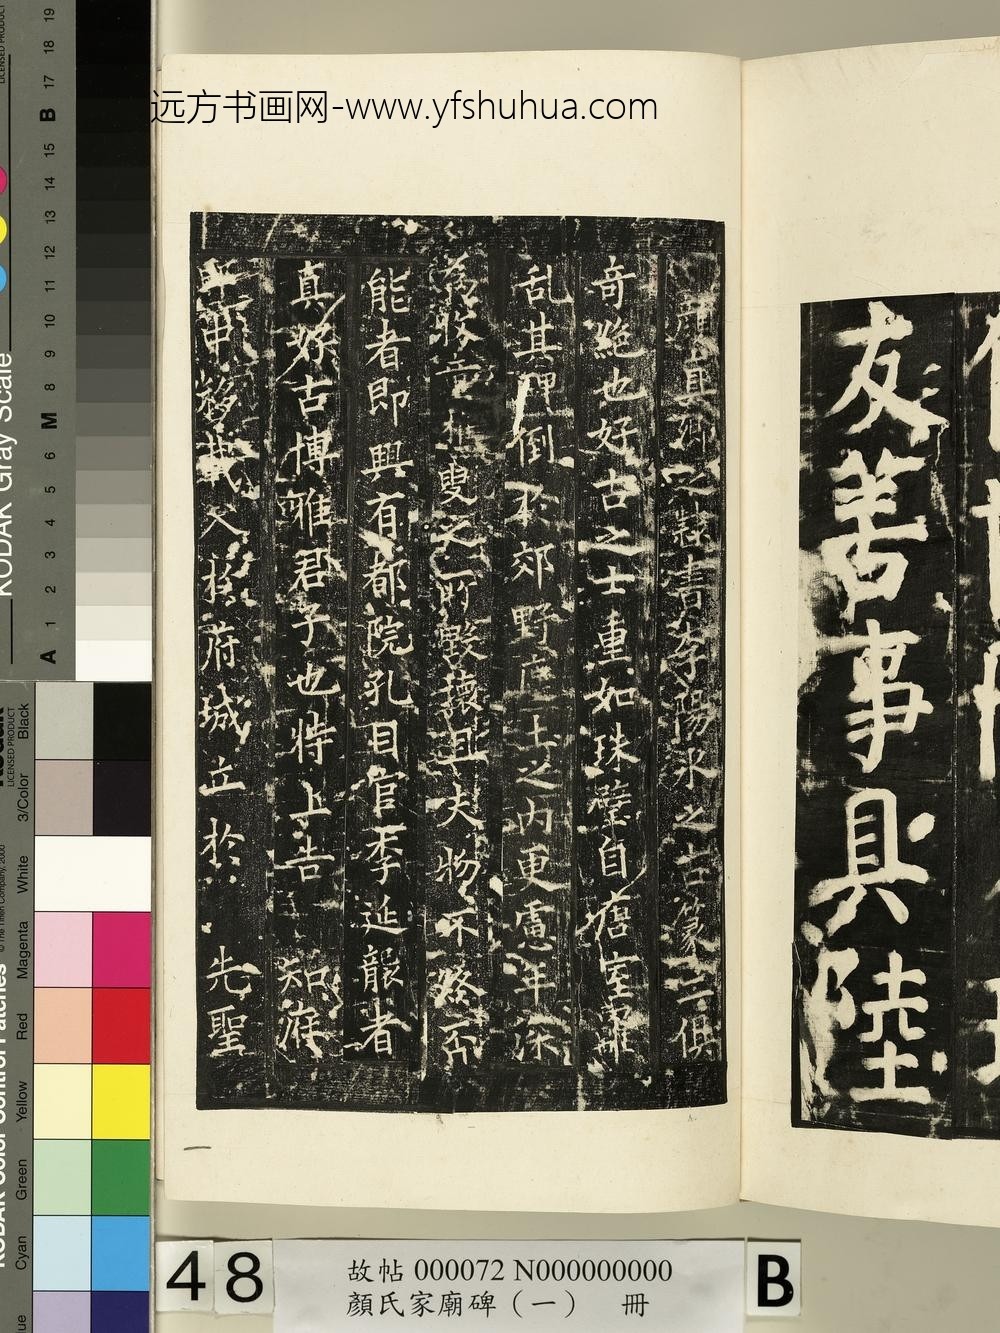 远方书画网-www.yfshuhua.com
書李陽冰之古篆二俱
奇絕也好古之士重如珠璧自唐室
乱其碑倒於郊野 土之內更慮年深
為牧童 叟之所毀壞且夫物不終否
能者即興有都院孔目官李延襲者
真好古博雅君子也特上告 知
甲移載入於府城立於 先聖
友善事具陸
KODAK Gray Scale
LICENSED PRODUCT
A 1 2 3 4 5 6 M 8 9 10 11 12 13 14 15 B 17 18 19
KODAK Color Control Patches
LICENSED PRODUCT
© The Tiffen Company, 2000
Cyan Green Yellow Red Magenta White 3/Color Black
48
故帖 000072 N000000000
顏氏家廟碑（一） 冊
B